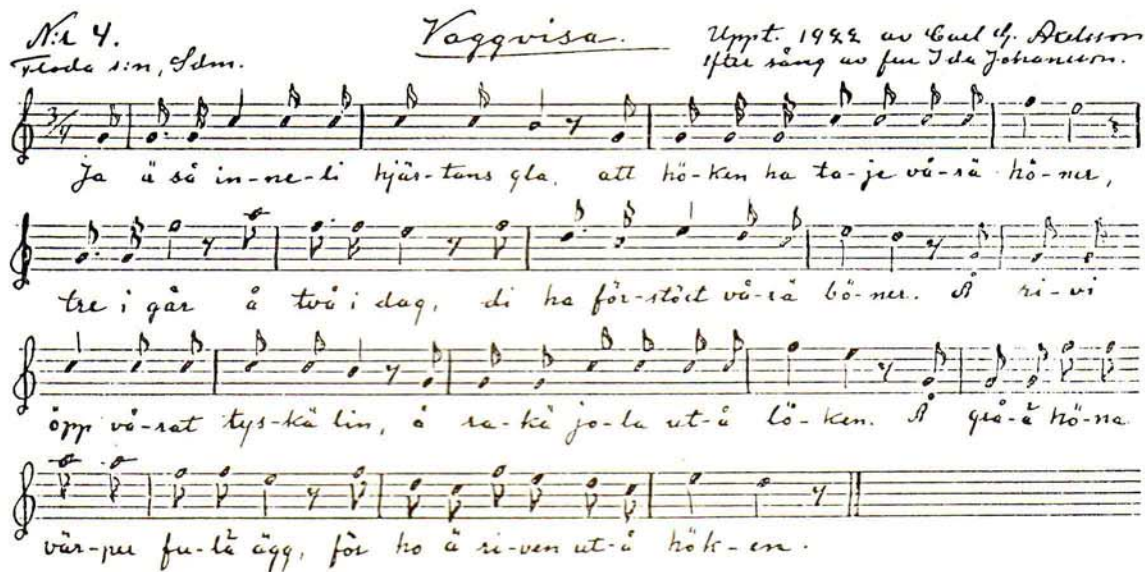 N:r 4. Vaggvisa. Uppt. 1922 av Carl G. Axelsson
Floda s:n, Sdm. efter sång av fru Ida Johansson.
3/4
Ja ä så in-ne-li hjär-tans gla, att hö-ken ha ta-je vå-rä hö-ner,
tre i går å två i dag, di ha för-stöct vå-rä bö-ner. Å ri-vi
öpp vå-rat tys-kä lin, å ra-kä jo-la ut-å lö-ken. Å grå-ä hö-na
vär-per fu-lä ägg, för ho ä ri-ven ut-å hök-en.